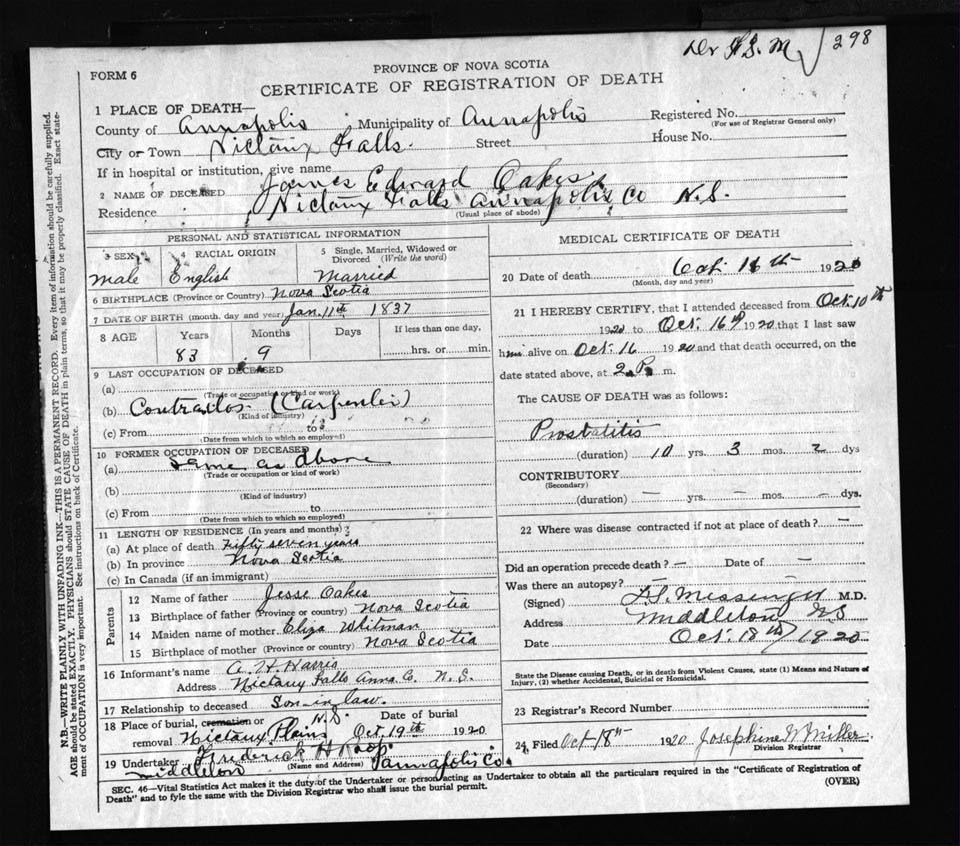 Dr H. S. M 298
FORM 6
PROVINCE OF NOVA SCOTIA
CERTIFICATE OF REGISTRATION OF DEATH
1 PLACE OF DEATH—
County of Annapolis Municipality of Annapolis Registered No.
(For use of Registrar General only)
City or Town Nictaux Falls. Street House No.
If in hospital or institution, give name
2 NAME OF DECEASED James Edward Oakes
Residence Nictaux Falls Annapolis Co N.S.
(Usual place of abode)
PERSONAL AND STATISTICAL INFORMATION
3 SEX 4 RACIAL ORIGIN 5 Single, Married, Widowed or Divorced (Write the word)
male English Married
6 BIRTHPLACE (Province or Country) Nova Scotia
7 DATE OF BIRTH (month, day and year) Jan. 11th 1837
8 AGE Years Months Days If less than one day,
83 9 hrs. or min.
9 LAST OCCUPATION OF DECEASED
(a)
(Trade or occupation or kind or work)
(b) Contractor (Carpenter)
(Kind of industry)
(c) From to
(Date from which to which so employed)
10 FORMER OCCUPATION OF DECEASED
(a) same as above
(Trade or occupation or kind of work)
(b)
(Kind of industry)
(c) From to
(Date from which to which so employed)
11 LENGTH OF RESIDENCE (In years and months)
(a) At place of death Fifty seven years
(b) In province Nova Scotia
(c) In Canada (if an immigrant)
Parents
12 Name of father Jesse Oakes
13 Birthplace of father (Province or country) Nova Scotia
14 Maiden name of mother Eliza Whitman
15 Birthplace of mother (Province or country) Nova Scotia
16 Informant's name A. H. Harris
Address Nictaux Falls Anna. Co. N.S.
17 Relationship to deceased Son-in-law.
18 Place of burial, cremation or removal Nictaux Plains N.S. Date of burial Oct. 19th 1920
19 Undertaker Frederick H Roop
(Name and Address)
Middleton Annapolis Co.
MEDICAL CERTIFICATE OF DEATH
20 Date of death Oct 16th 1920
(Month, day and year)
21 I HEREBY CERTIFY, that I attended deceased from Oct. 10th
1920 to Oct. 16th 1920 that I last saw
him alive on Oct. 16 1920 and that death occurred, on the
date stated above, at 2 P. m.
The CAUSE OF DEATH was as follows:
Prostatitis
(duration) 10 yrs. 3 mos. 2 dys
CONTRIBUTORY
(Secondary)
(duration) — yrs. — mos. — dys.
22 Where was disease contracted if not at place of death? —
Did an operation precede death? — Date of —
Was there an autopsy? —
(Signed) Messenger M.D.
Address Middleton NS
Date Oct. 18th 1920
State the Disease causing Death, or in death from Violent Causes, state (1) Means and Nature of
Injury, (2) whether Accidental, Suicidal or Homicidal.
23 Registrar's Record Number
24 Filed Oct 18th 1920 Josephine W Miller
Division Registrar
SEC. 46—Vital Statistics Act makes it the duty of the Undertaker or person acting as Undertaker to obtain all the particulars required in the "Certificate of Registration of
Death" and to fyle the same with the Division Registrar who shall issue the burial permit.
(OVER)
N.B.—WRITE PLAINLY WITH UNFADING INK—THIS IS A PERMANENT RECORD. Every item of information should be carefully supplied.
AGE should be stated EXACTLY. PHYSICIANS should STATE CAUSE OF DEATH in plain terms, so that it may be properly classified. Exact state-
ment of OCCUPATION is very important. See instructions on back of Certificate.